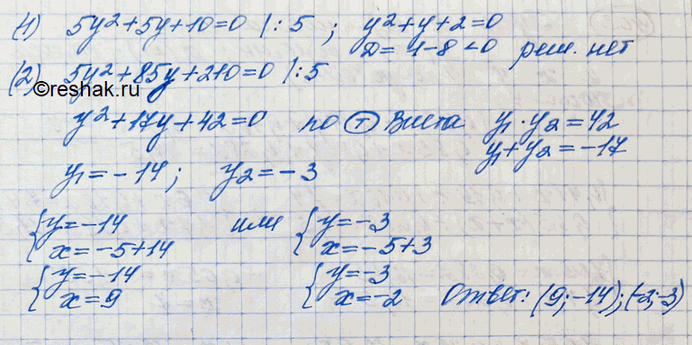 (1) 5y²+5y+10=0 |:5 ; y²+y+2=0
D=1-8<0 реш. нет
(2) 5y²+85y+210=0 |:5
©reshak.ru
y²+17y+42=0 по (т) Виета y₁·y₂=42
y₁+y₂=-17
y₁=-14; y₂=-3
{y=-14 или {y=-3
x=-5+14 x=-5+3
{y=-14 {y=-3
x=9 x=-2 Ответ: (9;-14);(-2;-3)